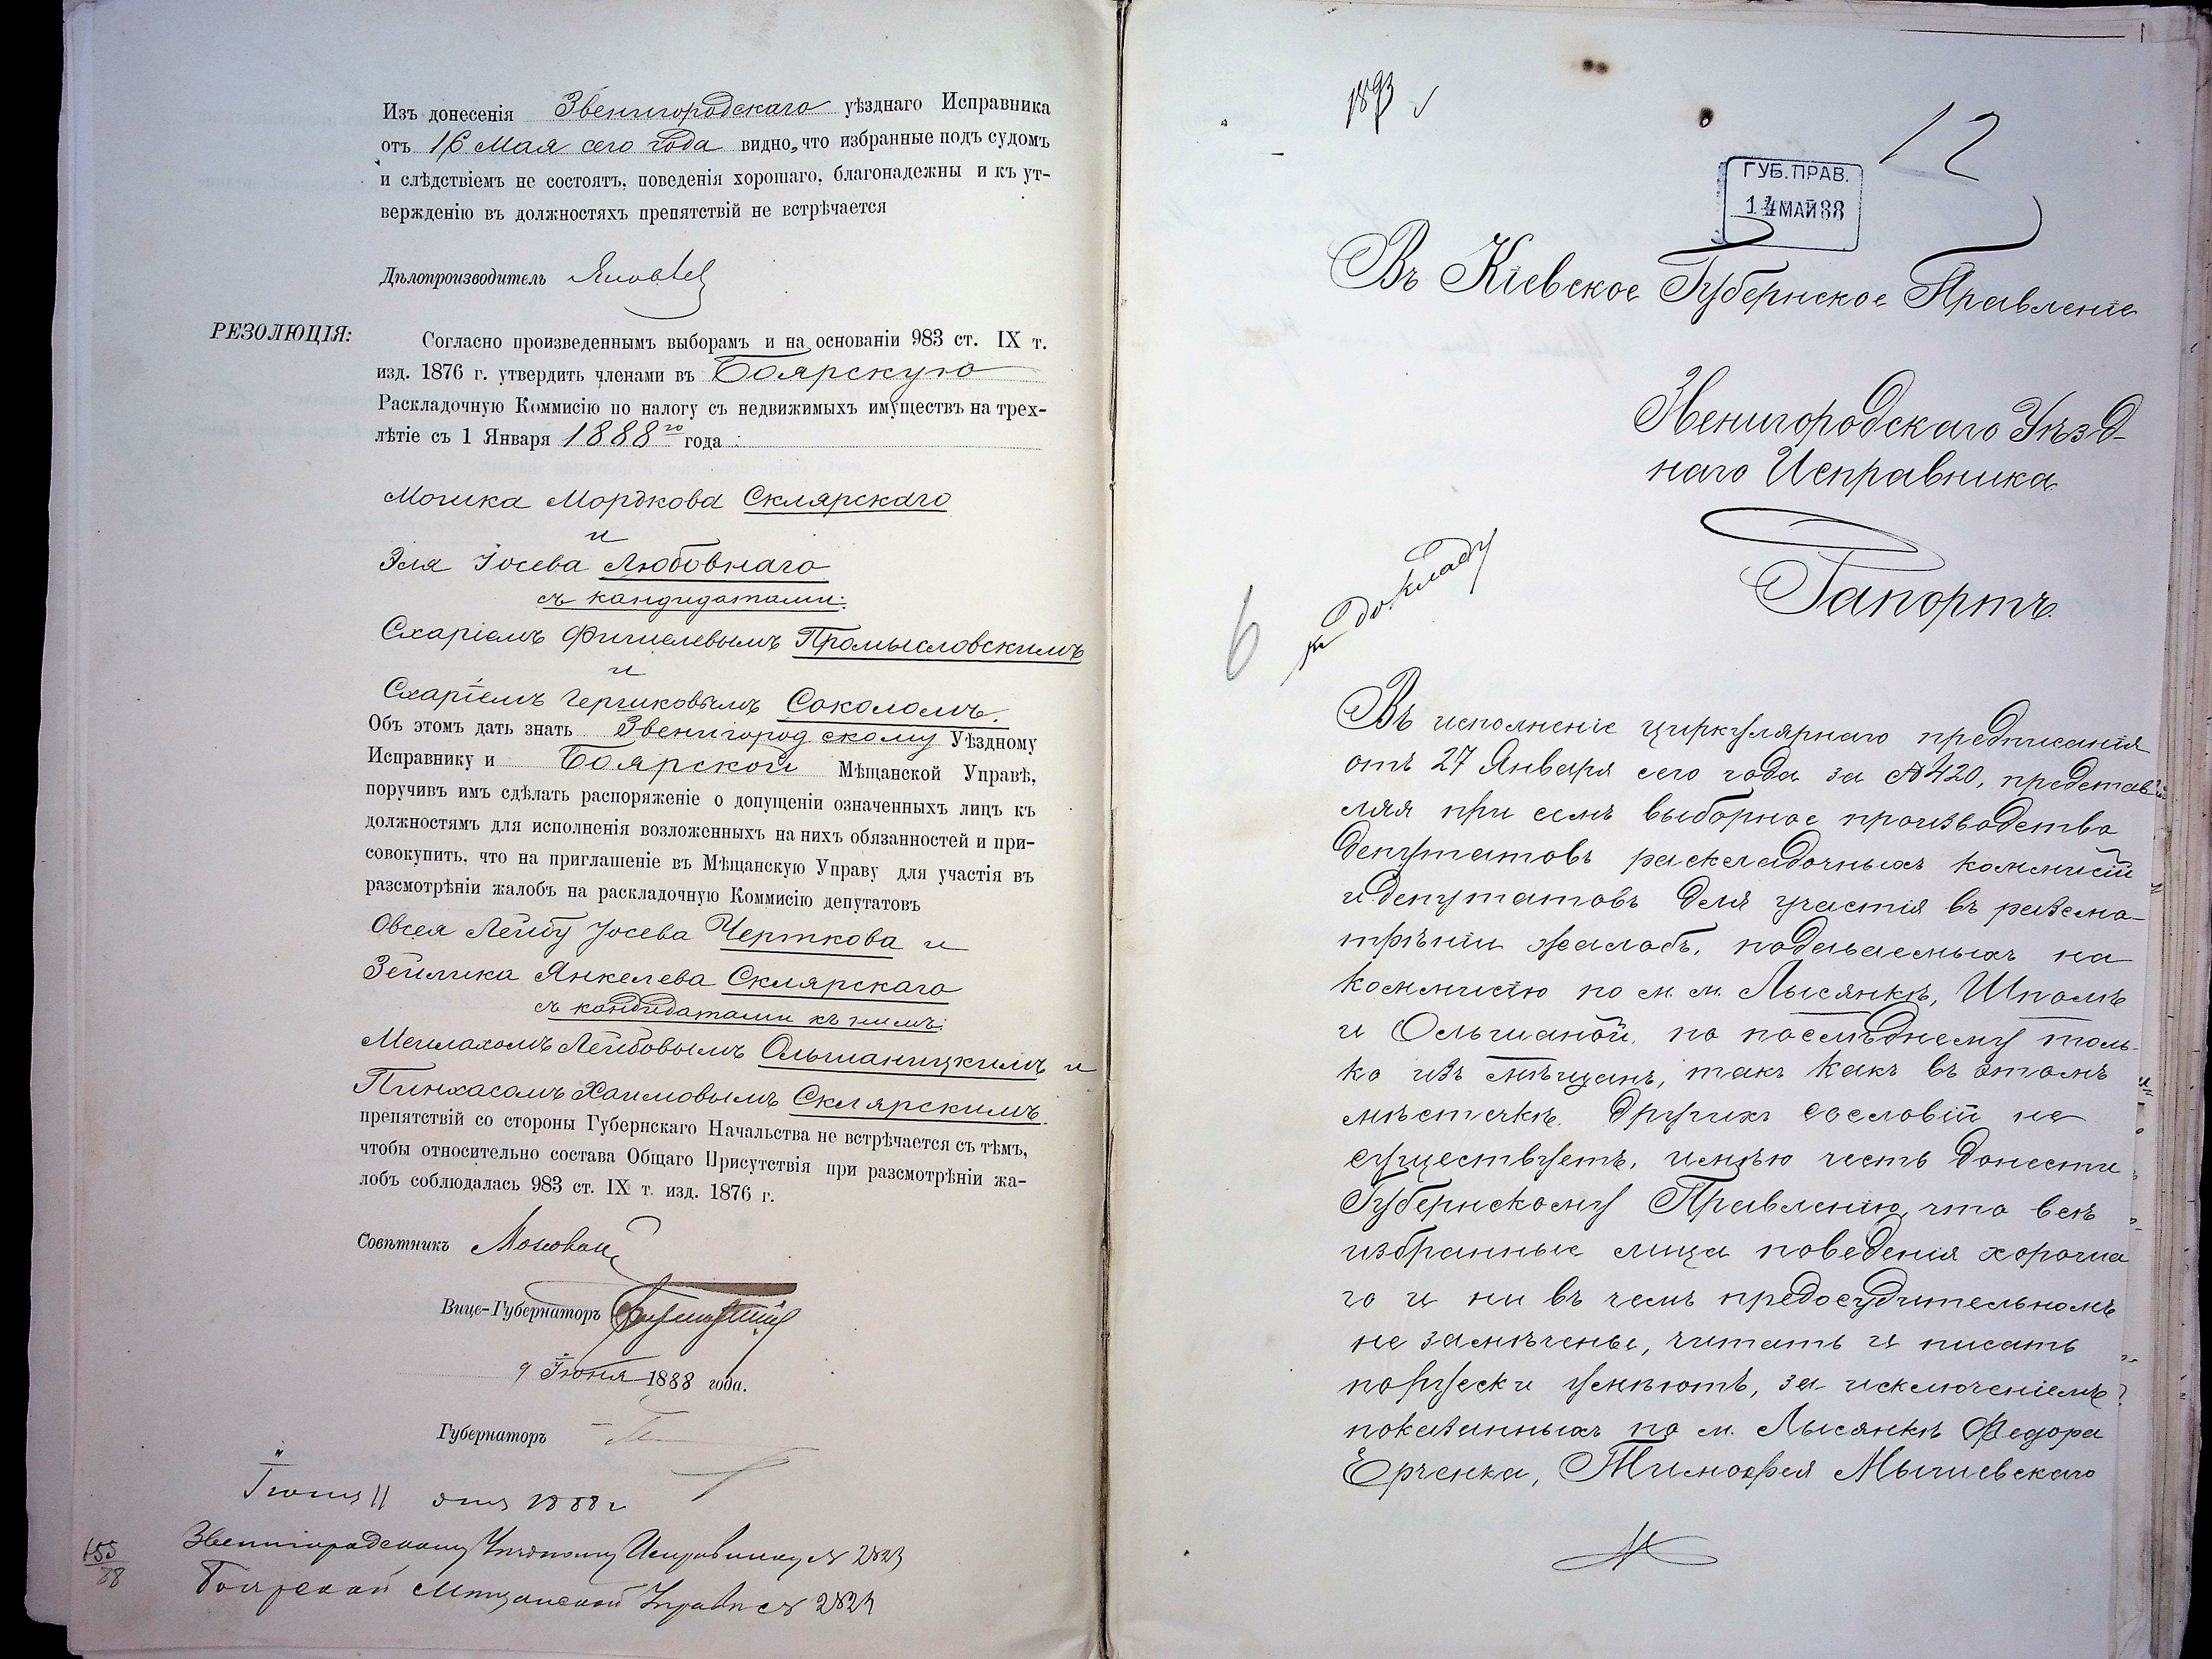 Изъ донесенія Звенигородскаго уѣзднаго Исправника
отъ 16 Мая сего года видно, что избранные подъ судомъ
и слѣдствіемъ не состоятъ, поведенія хорошаго, благонадежны и къ ут-
вержденію въ должностяхъ препятствій не встрѣчается
Дѣлопроизводитель
РЕЗОЛЮЦІЯ:
Согласно произведеннымъ выборамъ и на основаніи 983 ст. IX т.
изд. 1876 г. утвердить членами въ Боярскую
Раскладочную Коммисію по налогу съ недвижимыхъ имуществъ на трех-
лѣтіе съ 1 Января 1888го года
Мошка Мордкова Склярскаго
и
Эля Іосева Любовнаго
съ кандидатами:
Схаріемъ Фишелевымъ Промысловскимъ
и
Схаріемъ Гершковымъ Соколомъ.
Объ этомъ дать знать Звенигородскому Уѣздному
Исправнику и Боярской Мѣщанской Управѣ,
поручивъ имъ сдѣлать распоряженіе о допущеніи означенныхъ лицъ къ
должностямъ для исполненія возложенныхъ на нихъ обязанностей и при-
совокупить, что на приглашеніе въ Мѣщанскую Управу для участія въ
разсмотрѣніи жалобъ на раскладочную Коммисію депутатовъ
Овсея Лейбу Іосева Черткова и
Зейлика Янкелева Склярскаго
съ кандидатами къ нимъ:
Мейлахомъ Лейбовымъ Ольшаницкимъ и
Пинхасомъ Хаимовымъ Склярскимъ.
препятствій со стороны Губернскаго Начальства не встрѣчается съ тѣмъ,
чтобы относительно состава Общаго Присутствія при разсмотрѣніи жа-
лобъ соблюдалась 983 ст. IX т. изд. 1876 г.
Совѣтникъ
Вице-Губернаторъ
9 Іюня 1888 года.
Губернаторъ
Іюня 11 дня 1888 г
Звенигородскому Уѣздному Исправнику №
Боярской Мѣщанской Управѣ №
155
88
1893
12
ГУБ. ПРАВ.
14 МАЙ 88
Въ Кіевское Губернское Правленіе
Звенигородскаго Уѣзд-
наго Исправника
Рапортъ.
къ докладу
6
Въ исполненіе циркулярнаго предписанія
отъ 27 Января сего года за № 420, представ
ляя при семъ выборное производство
депутатовъ раскладочныхъ коммисій
и депутатовъ для участія въ разсмо-
трѣніи жалобъ, подаваемыхъ на
коммисію по м. м. Лысянкѣ, Шполѣ
и Ольшаной, по послѣднему толь-
ко изъ мѣщанъ, такъ какъ въ этомъ
мѣстечкѣ другихъ сословій не
существуетъ, имѣю честь донести
Губернскому Правленію, что всѣ
избранные лица поведенія хороша
го и ни въ чемъ предосудительномъ
не замѣчены, читать и писать
порусски умѣютъ, за исключеніемъ
показанныхъ по м. Лысянкѣ Федора
Ерченка, Тимофея Мышевскаго